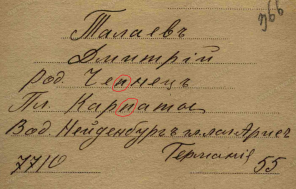 966
Талаевъ
Дмитрій
Род. Чепнецъ
Пл. Карпаты
Вод. Нейденбургъ палат Арнс
7710 Германія 55